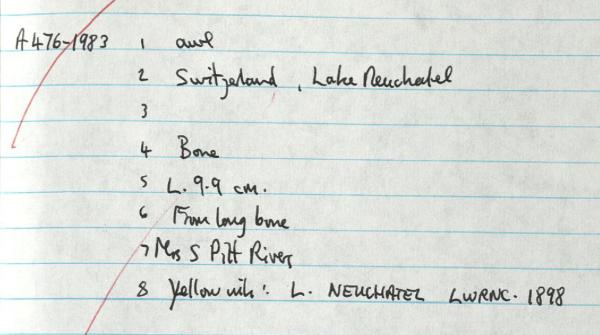 A476-1983 1 awl
2 Switzerland, Lake Neuchatel
3
4 Bone
5 L. 9.9 cm.
6 From long bone
7 Mrs S Pitt Rivers
8 Yellow ink: L. NEUCHATEL LWRNC. 1898